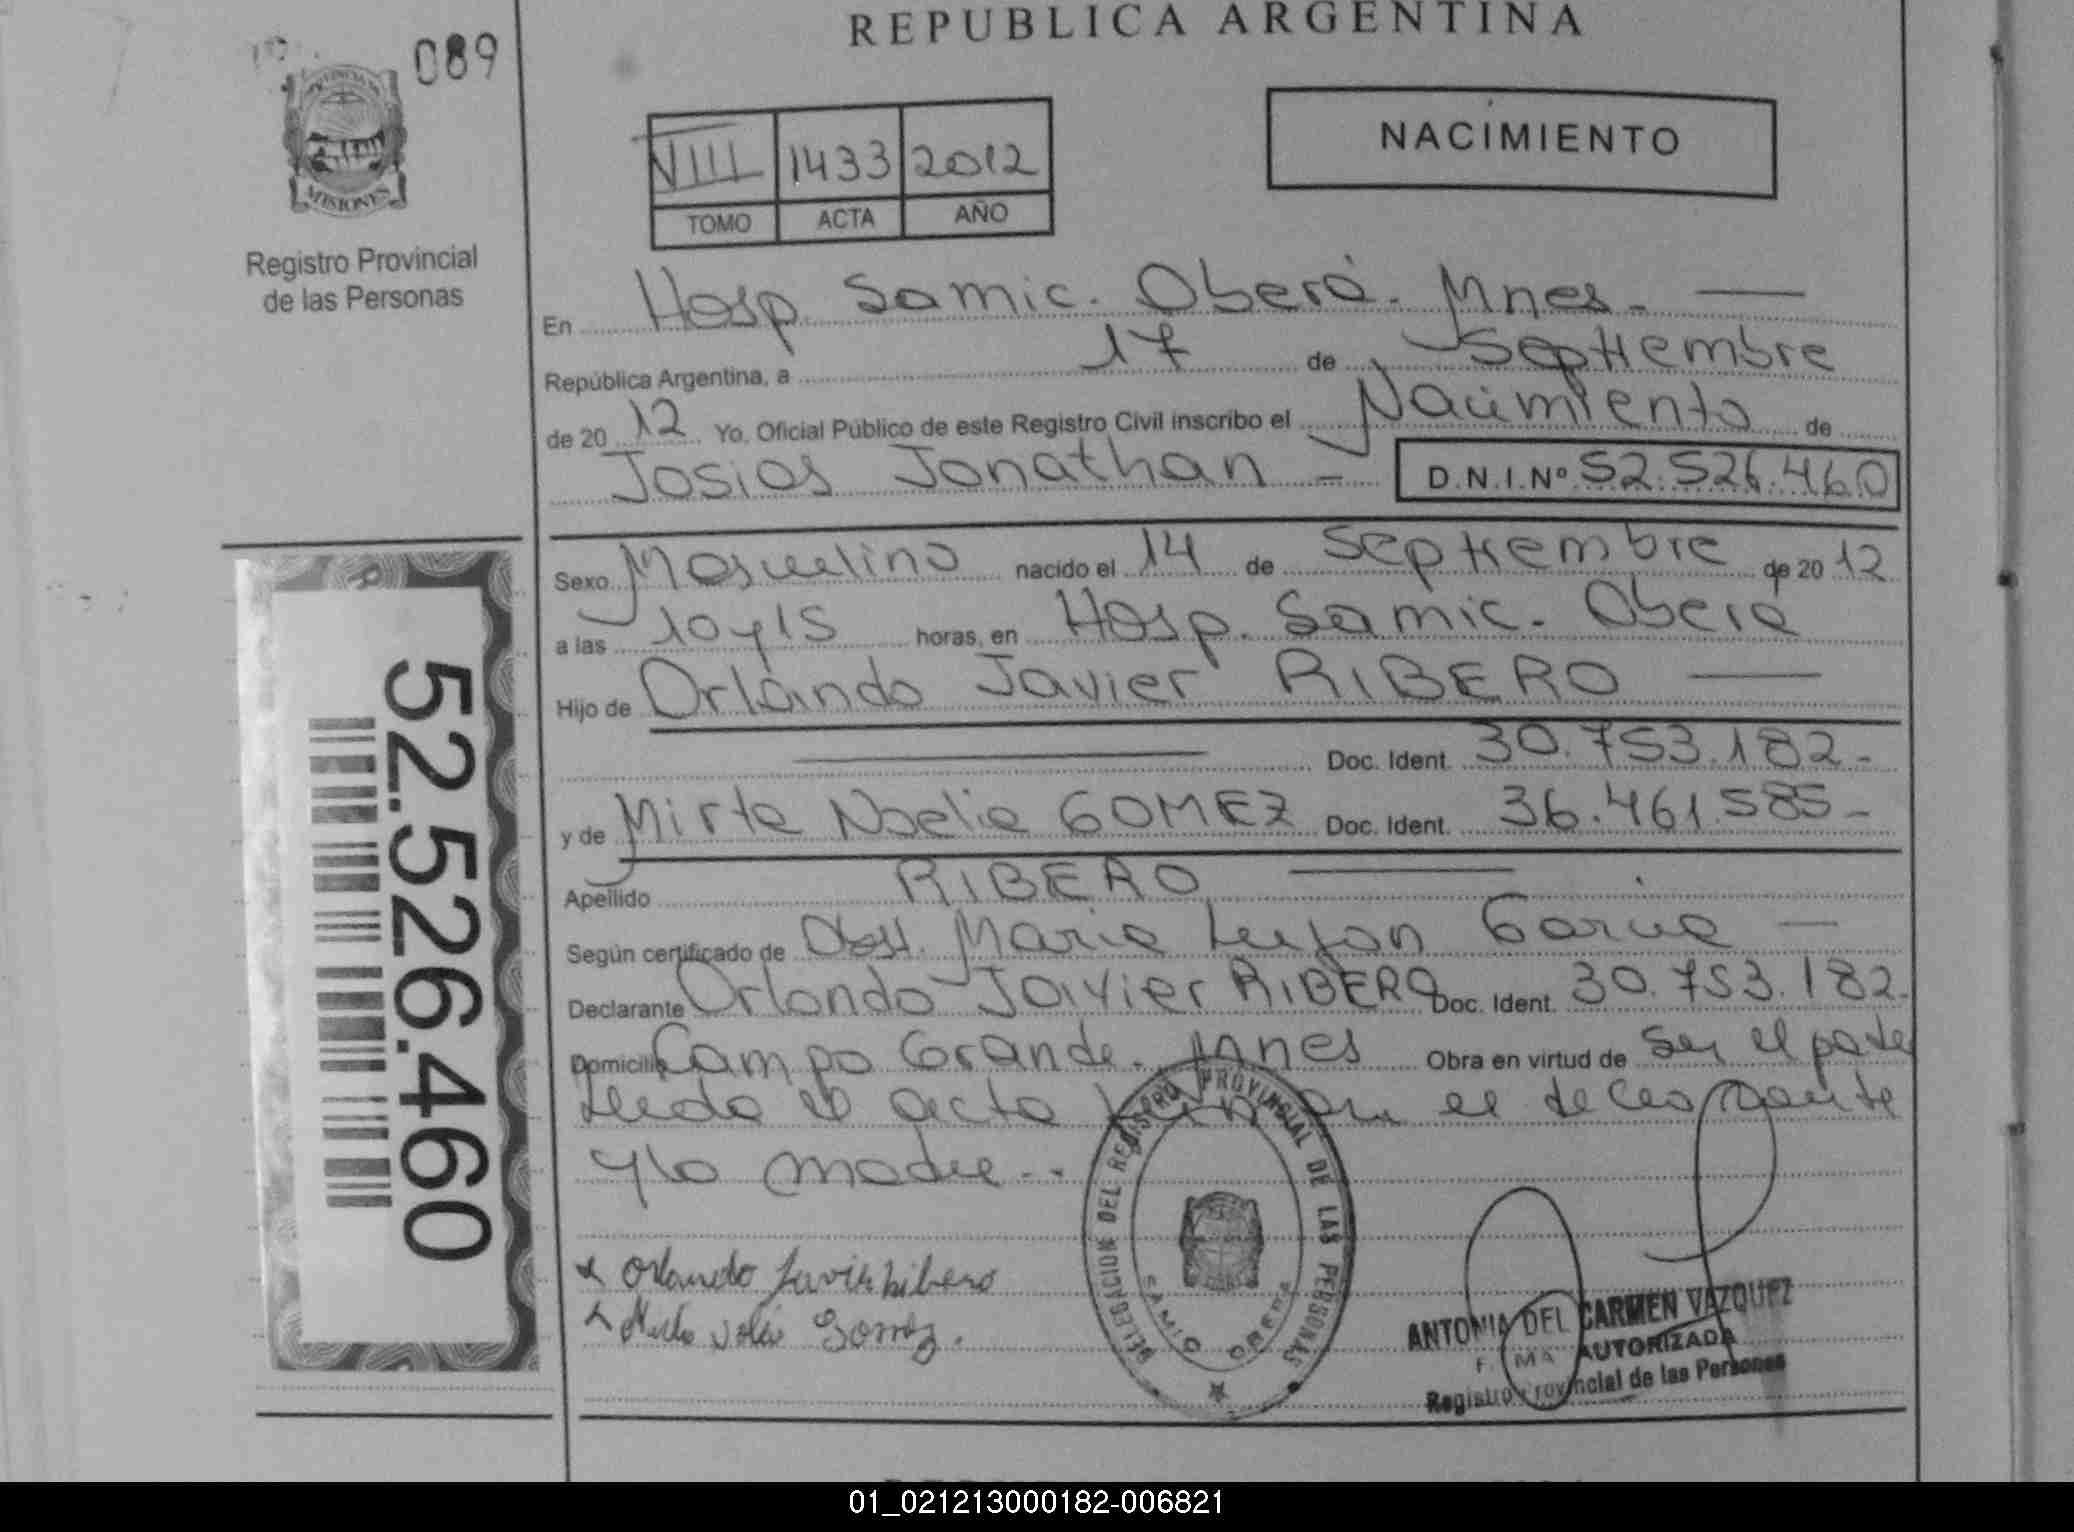 REPUBLICA ARGENTINA
089
PROVINCIA DE
MISIONES
Registro Provincial
de las Personas
VIII 1433 2012
TOMO ACTA AÑO
NACIMIENTO
En Hosp. Samic. Oberá. Mnes. —
República Argentina, a 17 de Septiembre
de 20 12 Yo, Oficial Público de este Registro Civil inscribo el Nacimiento de
Josias Jonathan — D.N.I.Nº 52.526.460
Sexo Masculino nacido el 14 de Septiembre de 20 12
a las 10 y 15 horas, en Hosp. Samic. Oberá
Hijo de Orlando Javier RIBERO —
— Doc. Ident. 30.753.182-
y de Mirta Noelia GOMEZ Doc. Ident. 36.461.585-
Apellido RIBERO —
Según certificado de Obst. Maria Lujan Garcia —
Declarante Orlando Javier RIBERO Doc. Ident. 30.753.182.
Domicilio Campo Grande. Mnes Obra en virtud de ser el padre
Leida el acta firman el declarante
y la madre--
52.526.460
x Orlando Javier Ribero
x Mirta Noelia Gomez.
DELEGACION DEL REGISTRO PROVINCIAL DE LAS PERSONAS
SAMIC OBERA
ANTONIA DEL CARMEN VAZQUEZ
FIRMA AUTORIZADA
Registro Provincial de las Personas
01_021213000182-006821